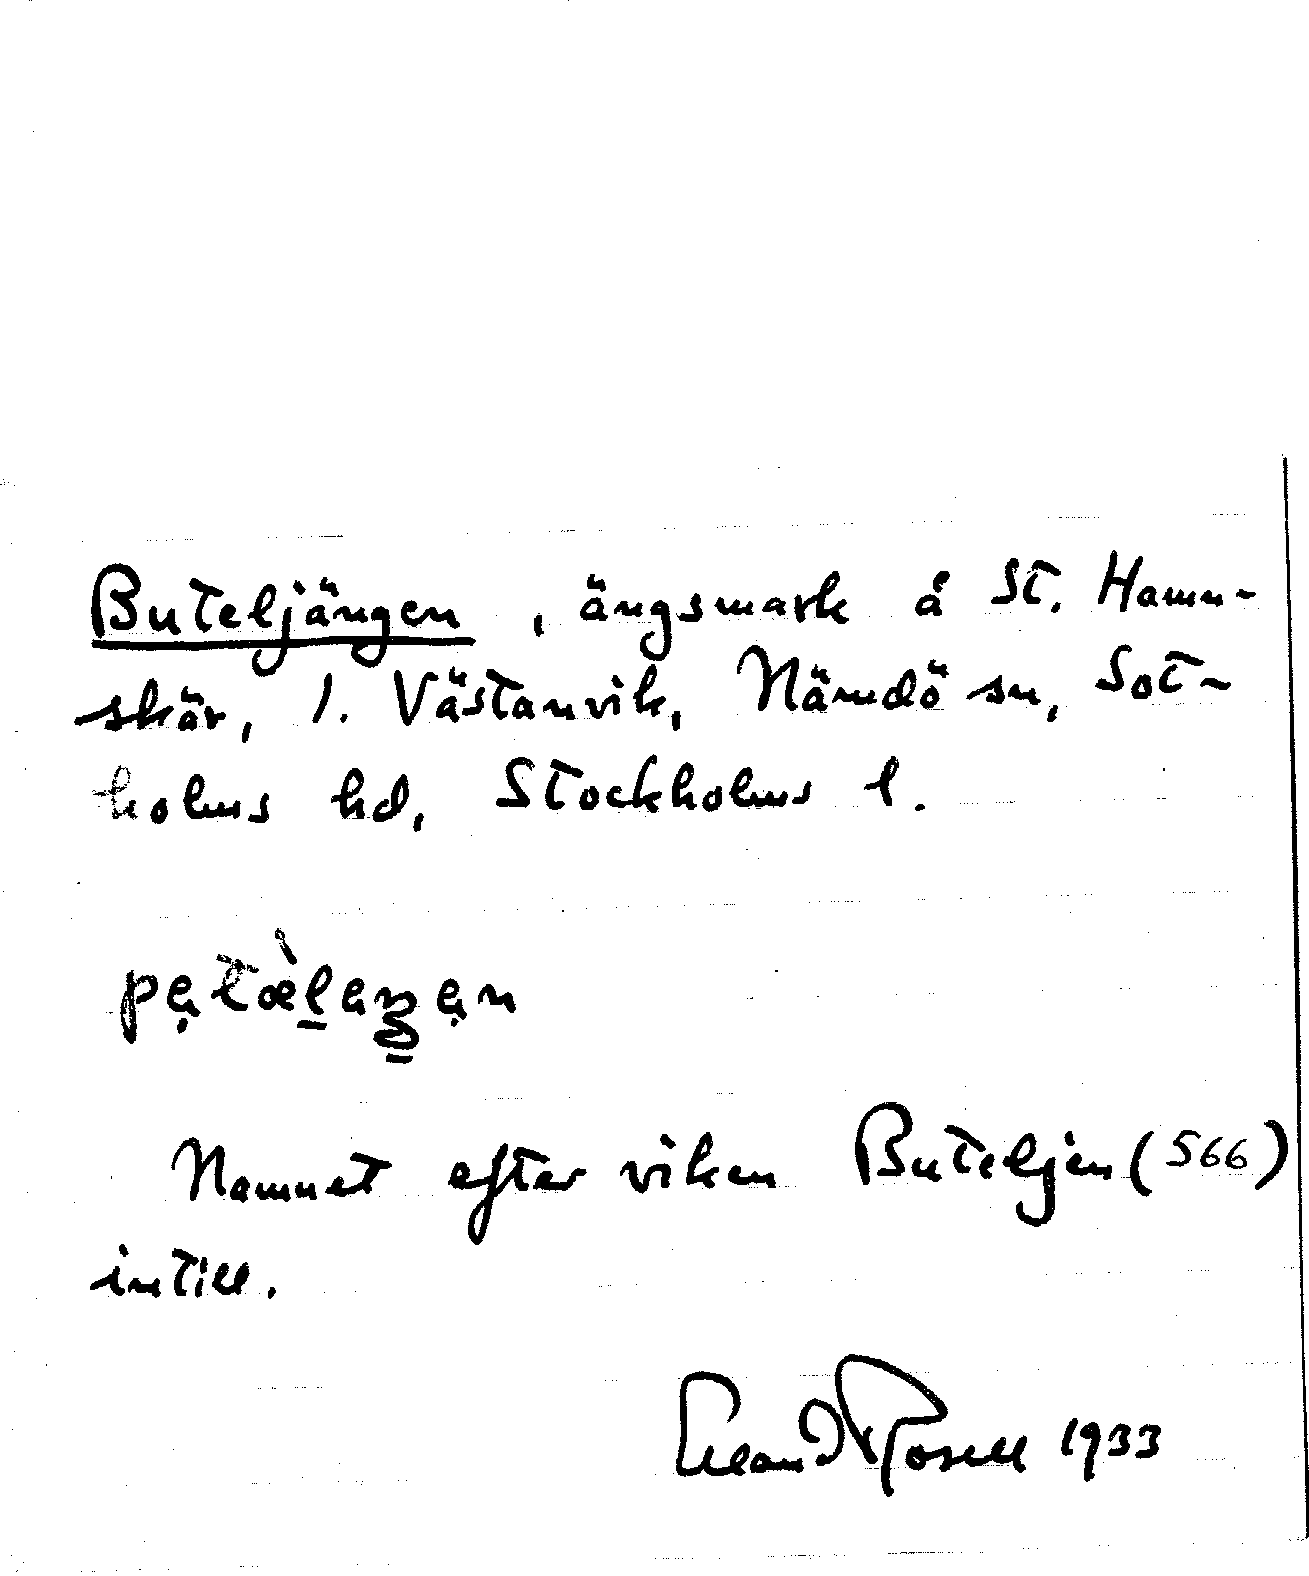 Buteljängen, ängsmark å St. Hamn-
skär, 1. Västanvik, Nämdö sn, Sot-
holms hd, Stockholms l.
Namnet efter viken Buteljen (566)
intill.
Erland Rosell 1933